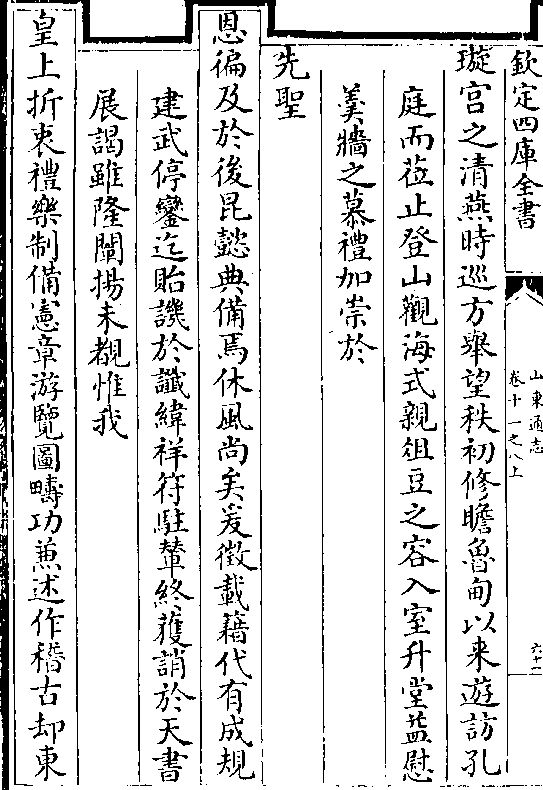 欽定四庫全書
山東通志
卷十一之八上
六十二
璇宮之清燕時巡方舉望秩初修瞻魯甸以来遊訪孔
庭而蒞止登山觀海式親俎豆之容入室升堂益慰
羮牆之慕禮加崇於
先聖
恩徧及於後昆懿典備焉休風尚矣爰徵載籍代有成規
建武停鑾迄貽譏於讖緯祥符駐輦終獲誚於天書
展謁雖隆闡揚未覩惟我
皇上折衷禮樂制備憲章游覽圖疇功兼述作稽古却東